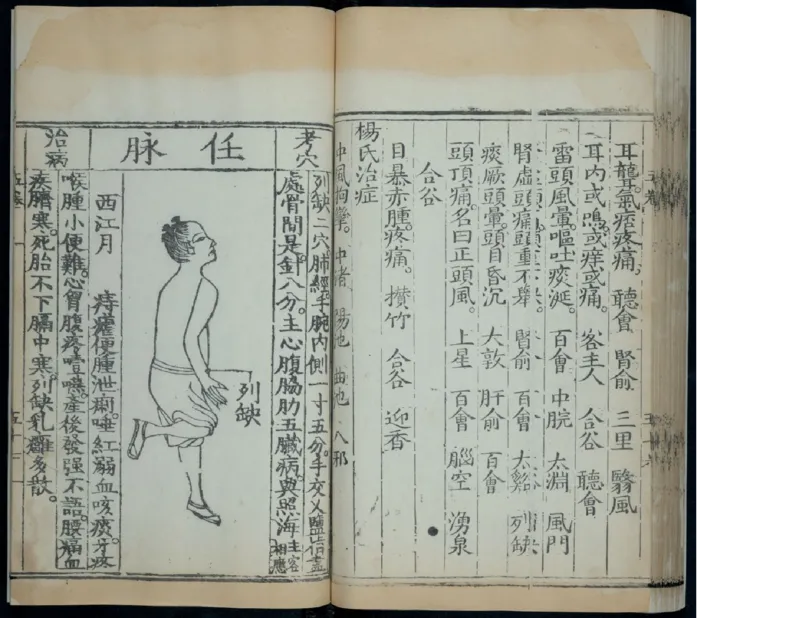 耳聾氣痞疼痛。聽會 腎俞 三里 翳風
耳內或鳴或痒或痛。客主人 合谷 聽會
雷頭風暈。嘔吐痰涎。百會 中脘 太淵 風門
腎虛頭痛頭重不舉。腎俞 百會 太谿 列缺
痰厥頭暈。頭目昏沉 大敦 肝俞 百會
頭頂痛。名曰正頭風。上星 百會 腦空 湧泉
合谷
目暴赤腫。疼痛。攢竹 合谷 迎香
楊氏治症
中風拘攣。中渚 陽池 曲池 八邪
考穴
列缺二穴肺經。手腕內側一寸五分。手交叉鹽指盡
處骨間是。針八分。主心腹脇肋五臟病。與照海主客
相應
任脉
列缺
治病
西江月 痔瘧便腫泄痢。唾紅溺血咳痰。牙疼
喉腫小便難。心胷腹疼噎嚥。產後發强不語。腰痛血
疾臍寒。死胎不下膈中寒。列缺乳癰多散。